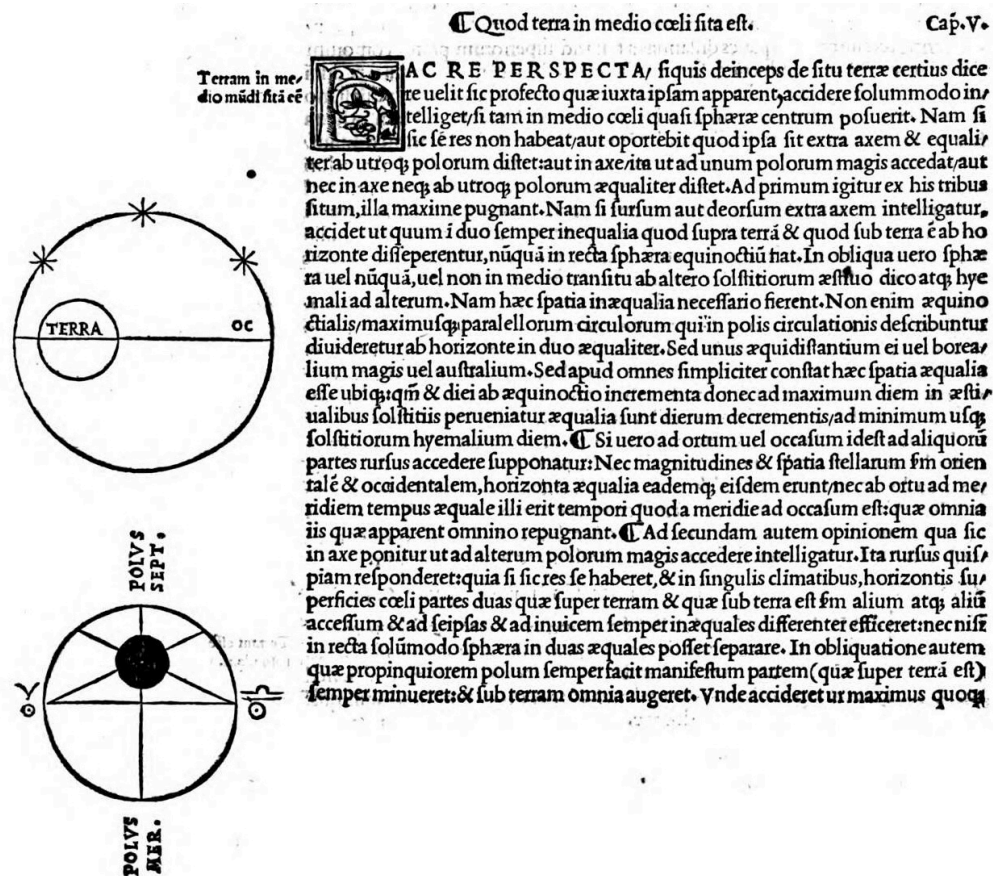 ⸿ Quod terra in medio cœli ſita eſt. Cap̃.V.
Terram in me/
dio mũdi ſitã eẽ
HAC RE PERSPECTA/ ſiquis deinceps de ſitu terræ certius dice
re uelit ſic profecto quæ iuxta ipſam apparent,accidere ſolummodo in/
telliget/ſi tam in medio cœli quaſi ſphæræ centrum poſuerit. Nam ſi
ſic ſe res non habeat/aut oportebit quod ipſa ſit extra axem & equali/
ter ab utroq; polorum diſtet:aut in axe/ita ut ad unum polorum magis accedat/aut
nec in axe neq; ab utroq; polorum æqualiter diſtet.Ad primum igitur ex his tribus
ſitum,illa maxime pugnant.Nam ſi ſurſum aut deorſum extra axem intelligatur,
accidet ut quum ĩ duo ſemper inequalia quod ſupra terrã & quod ſub terra ẽ ab ho
rizonte diſſeperentur,nũquã in recta ſphæra equinoctiũ fiat.In obliqua uero ſphæ
ra uel nũquã,uel non in medio tranſitu ab altero ſolſtitiorum æſtiuo dico atq; hye
mali ad alterum.Nam hæc ſpatia inæqualia neceſſario fierent.Non enim æquino
ctialis/maximuſq; paralellorum circulorum qui in polis circulationis deſcribuntur
diuideretur ab horizonte in duo æqualiter.Sed unus æquidiſtantium ei uel borea/
lium magis uel auſtralium.Sed apud omnes ſimpliciter conſtat hæc ſpatia æqualia
eſſe ubiq;:qm̃ & diei ab æquinoctio incrementa donec ad maximum diem in æſti/
ualibus ſolſtitiis perueniatur æqualia ſunt dierum decrementis/ad minimum uſq;
ſolſtitiorum hyemalium diem. ⸿ Si uero ad ortum uel occaſum ideſt ad aliquiorũ
partes rurſus accedere ſupponatur:Nec magnitudines & ſpatia ſtellarum ſm orien
talẽ & occidentalem,horizonta æqualia eademq; eiſdem erunt/nec ab ortu ad me/
ridiem tempus æquale illi erit tempori quod a meridie ad occaſum eſt:quæ omnia
iis quæ apparent omnino repugnant. ⸿ Ad ſecundam autem opinionem qua ſic
in axe ponitur ut ad alterum polorum magis accedere intelligatur.Ita rurſus quiſ/
piam reſponderet:quia ſi ſic res ſe haberet,& in ſingulis climatibus,horizontis ſu/
perficies cœli partes duas quæ ſuper terram & quæ ſub terra eſt ſm alium atq; aliũ
acceſſum & ad ſeipſas & ad inuicem ſemper inæquales differenter efficeret:nec niſi
in recta ſolũmodo ſphæra in duas æquales poſſet ſeparare. In obliquatione autem
quæ propinquiorem polum ſemper facit manifeſtum partem(quæ ſuper terrã eſt)
ſemper minueret:& ſub terram omnia augeret. Vnde accideret ut maximus quoq;
TERRA
OC
POLVS
SEPT.
♈
♎
POLVS
MER.